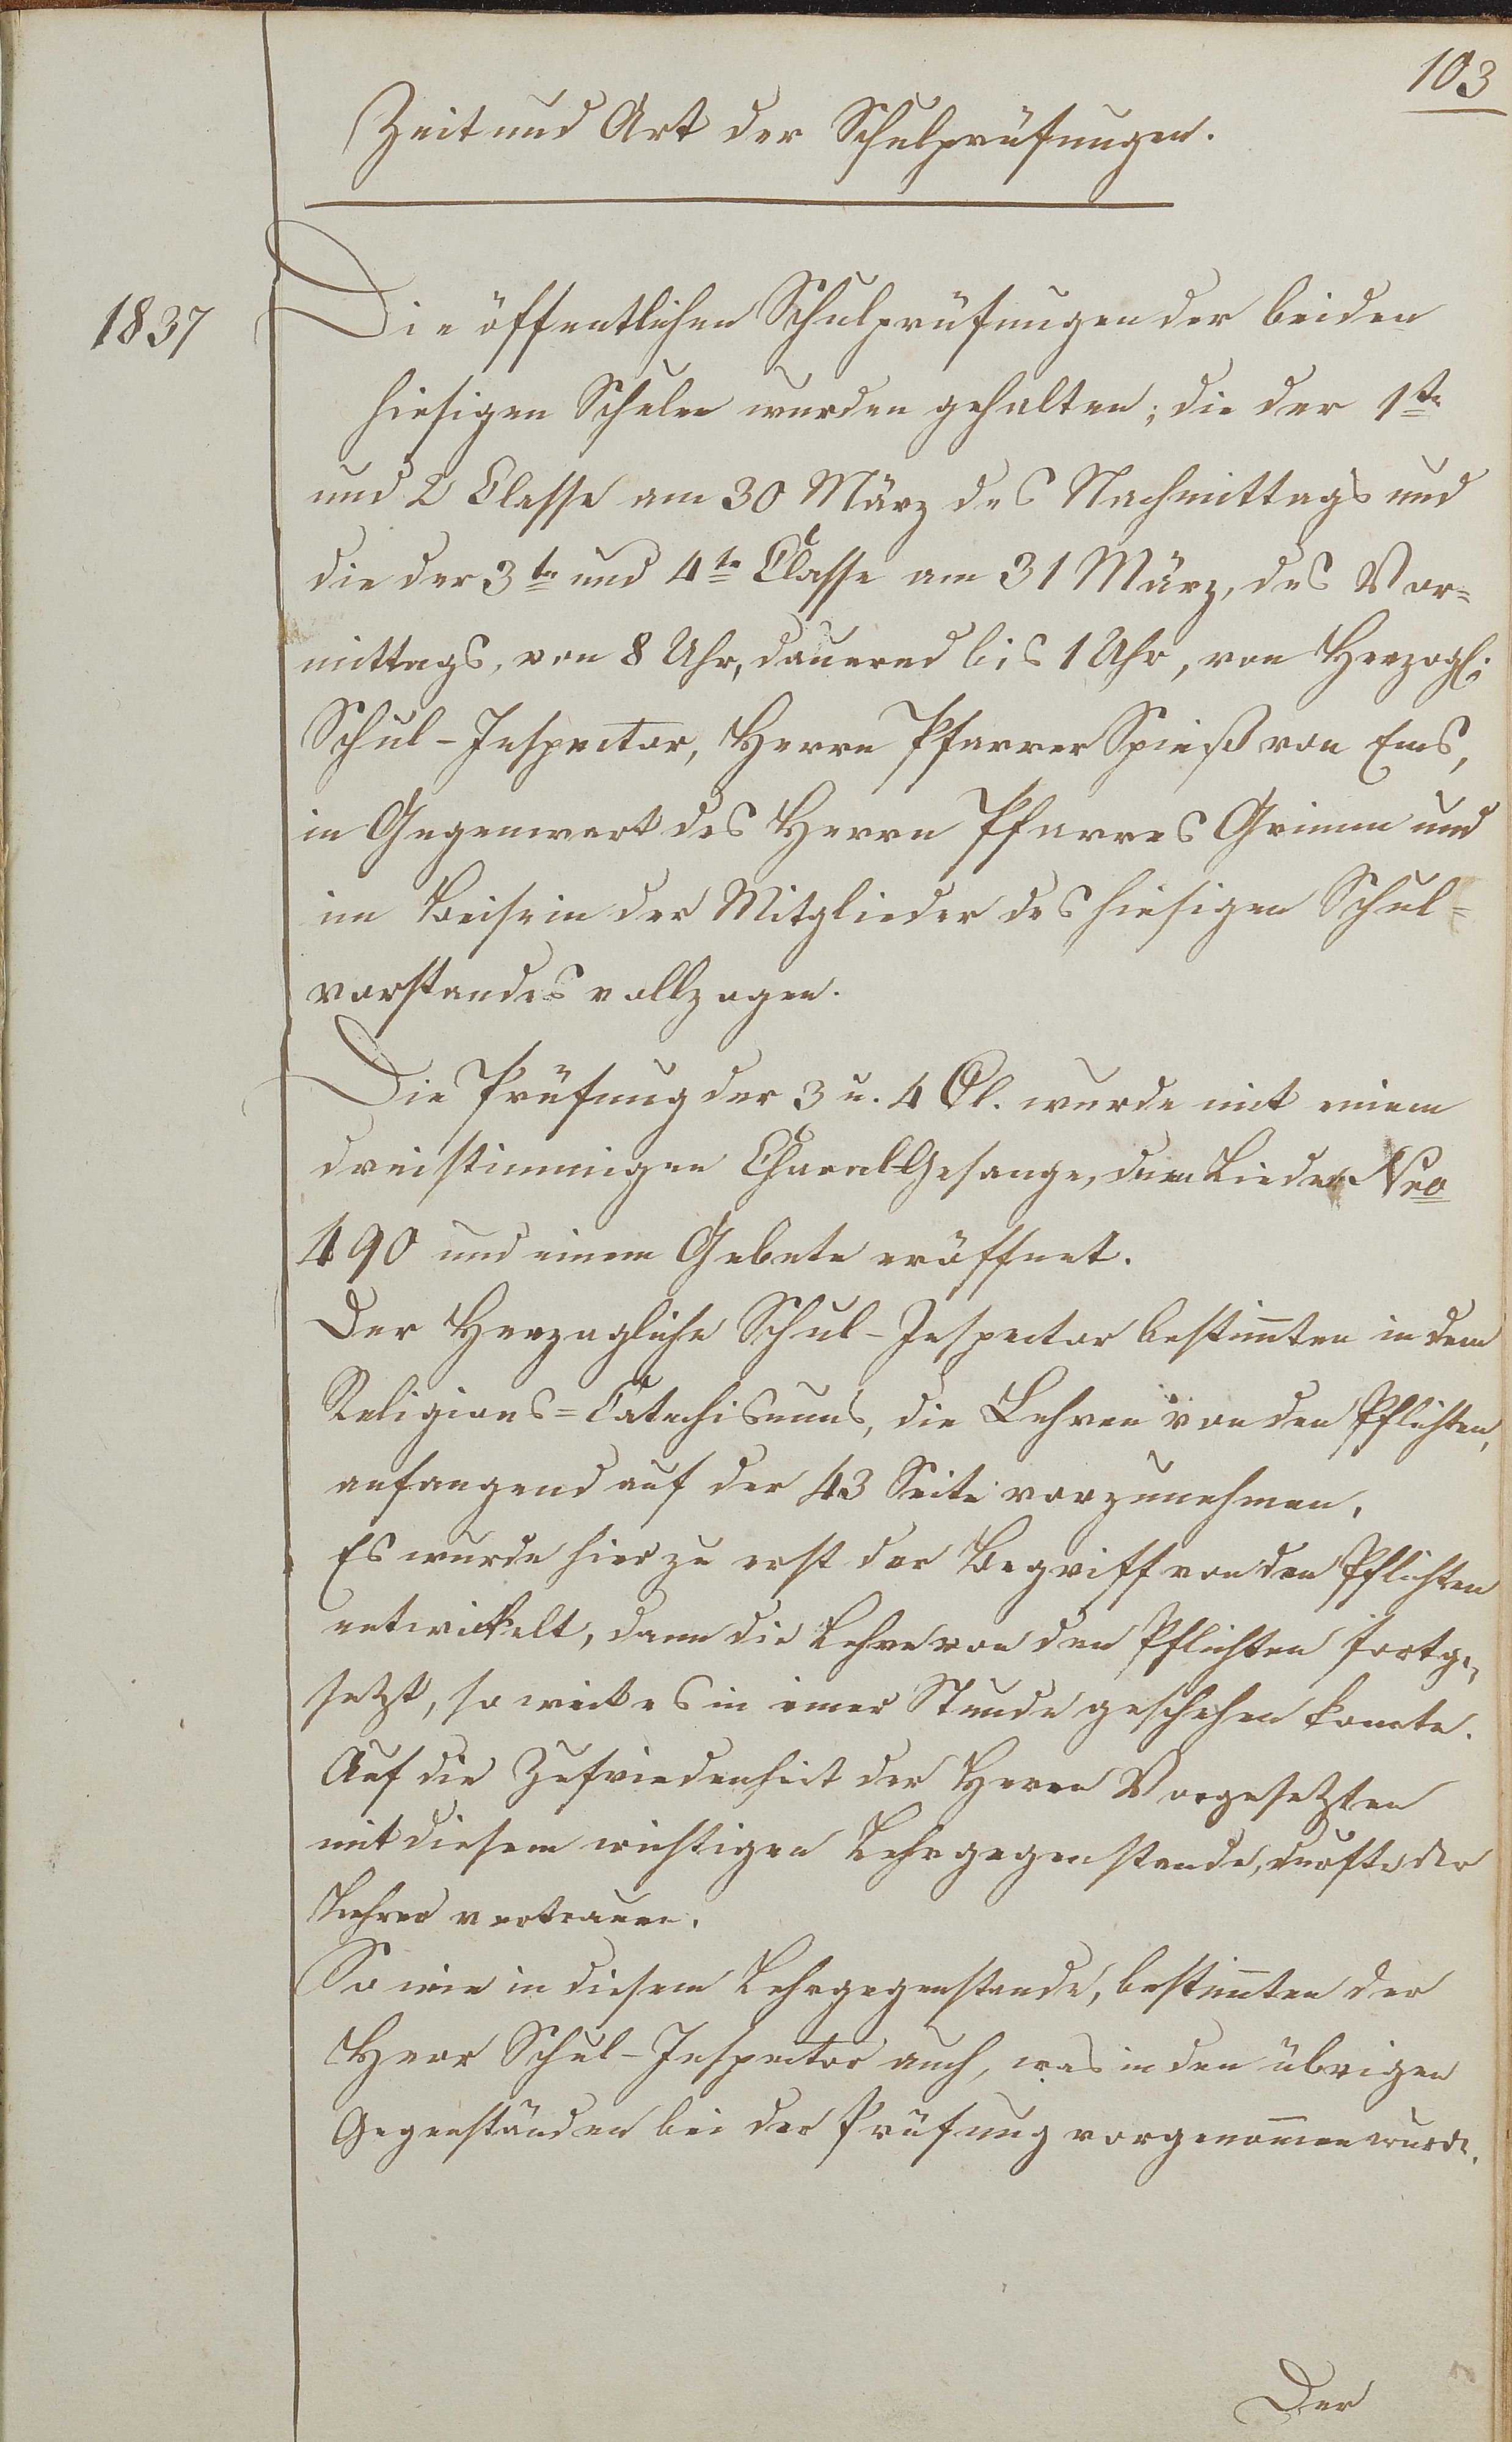 103
Zeit und Art der Schulprüfungen.
1837
Die öffentlichen Schulprüfungen der beiden
hiesigen Schulen wurden gehalten; die der 1te
und 2 Classe am 30 März des Nachmittags und
die der 3te und 4te Classe am 31 März, des Vor=
mittags, von 8 Uhr, dauernd bis 1 Uhr, von Herzogl:
Schul-Inspector, Herrn Pfarrer Spieß von Ems,
in Gegenwart des Herrn Pfarres Grimm und
im Beisein der Mitglieder des hiesigen Schul=
vorstandes vollzogen.
Die Prüfung der 3 u. 4 Cl. wurde mit einem
dreistimmigen Choral-Gesange, dem Liede Nro
490 und einem Gebete eröffnet.
Der Herzogliche Schul-Inspector bestimten in dem
Religions=Catechismus, die Lehren von den Pflichten,
anfangend auf der 43 Seite vorzunehmen.
Es wurde hier zu erst der Begriff von den Pflichten
entwickelt, dann die Lehre von den Pflichten fortge=
setzt, so weit es in einer Stunde geschehen konnte.
Auf die Zufriedenheit der Herrn Vorgesetzten
mit diesem wichtigen Lehrgegenstande, durfte der
Lehrer vertrauen.
So wie in diesem Lehrgegenstande, bestimten der
Herr Schul-Inspector auch, was in den übrigen
Gegenständen bei der Prüfung vorgenomen wurde.
Der